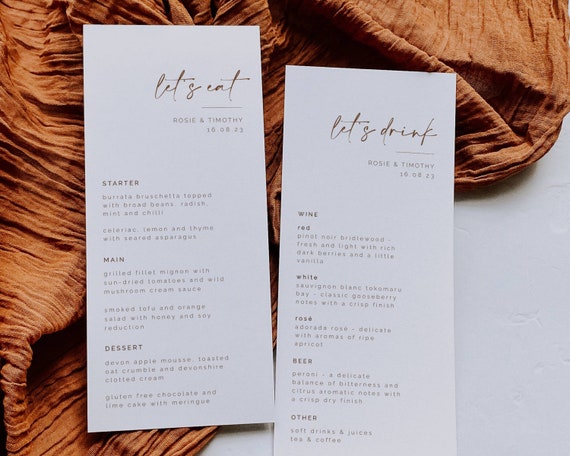 let's eat
ROSIE & TIMOTHY
16.08.23
STARTER
burrata bruschetta topped
with broad beans, radish,
mint and chilli
celeriac, lemon and thyme
with seared asparagus
MAIN
grilled fillet mignon with
sun-dried tomatoes and wild
mushroom cream sauce
smoked tofu and orange
salad with honey and soy
reduction
DESSERT
devon apple mousse, toasted
oat crumble and devonshire
clotted cream
gluten free chocolate and
lime cake with meringue
let's drink
ROSIE & TIMOTHY
16.08 23
WINE
red
pinot noir bridlewood -
fresh and light with rich
dark berries and a little
vanilla
white
sauvignon blanc tokomaru
bay - classic gooseberry
notes with a crisp finish
rosé
adorada rosé - delicate
with aromas of ripe
apricot
BEER
peroni - a delicate
balance of bitterness and
citrus aromatic notes with
a crisp dry finish
OTHER
soft drinks & juices
tea & coffee